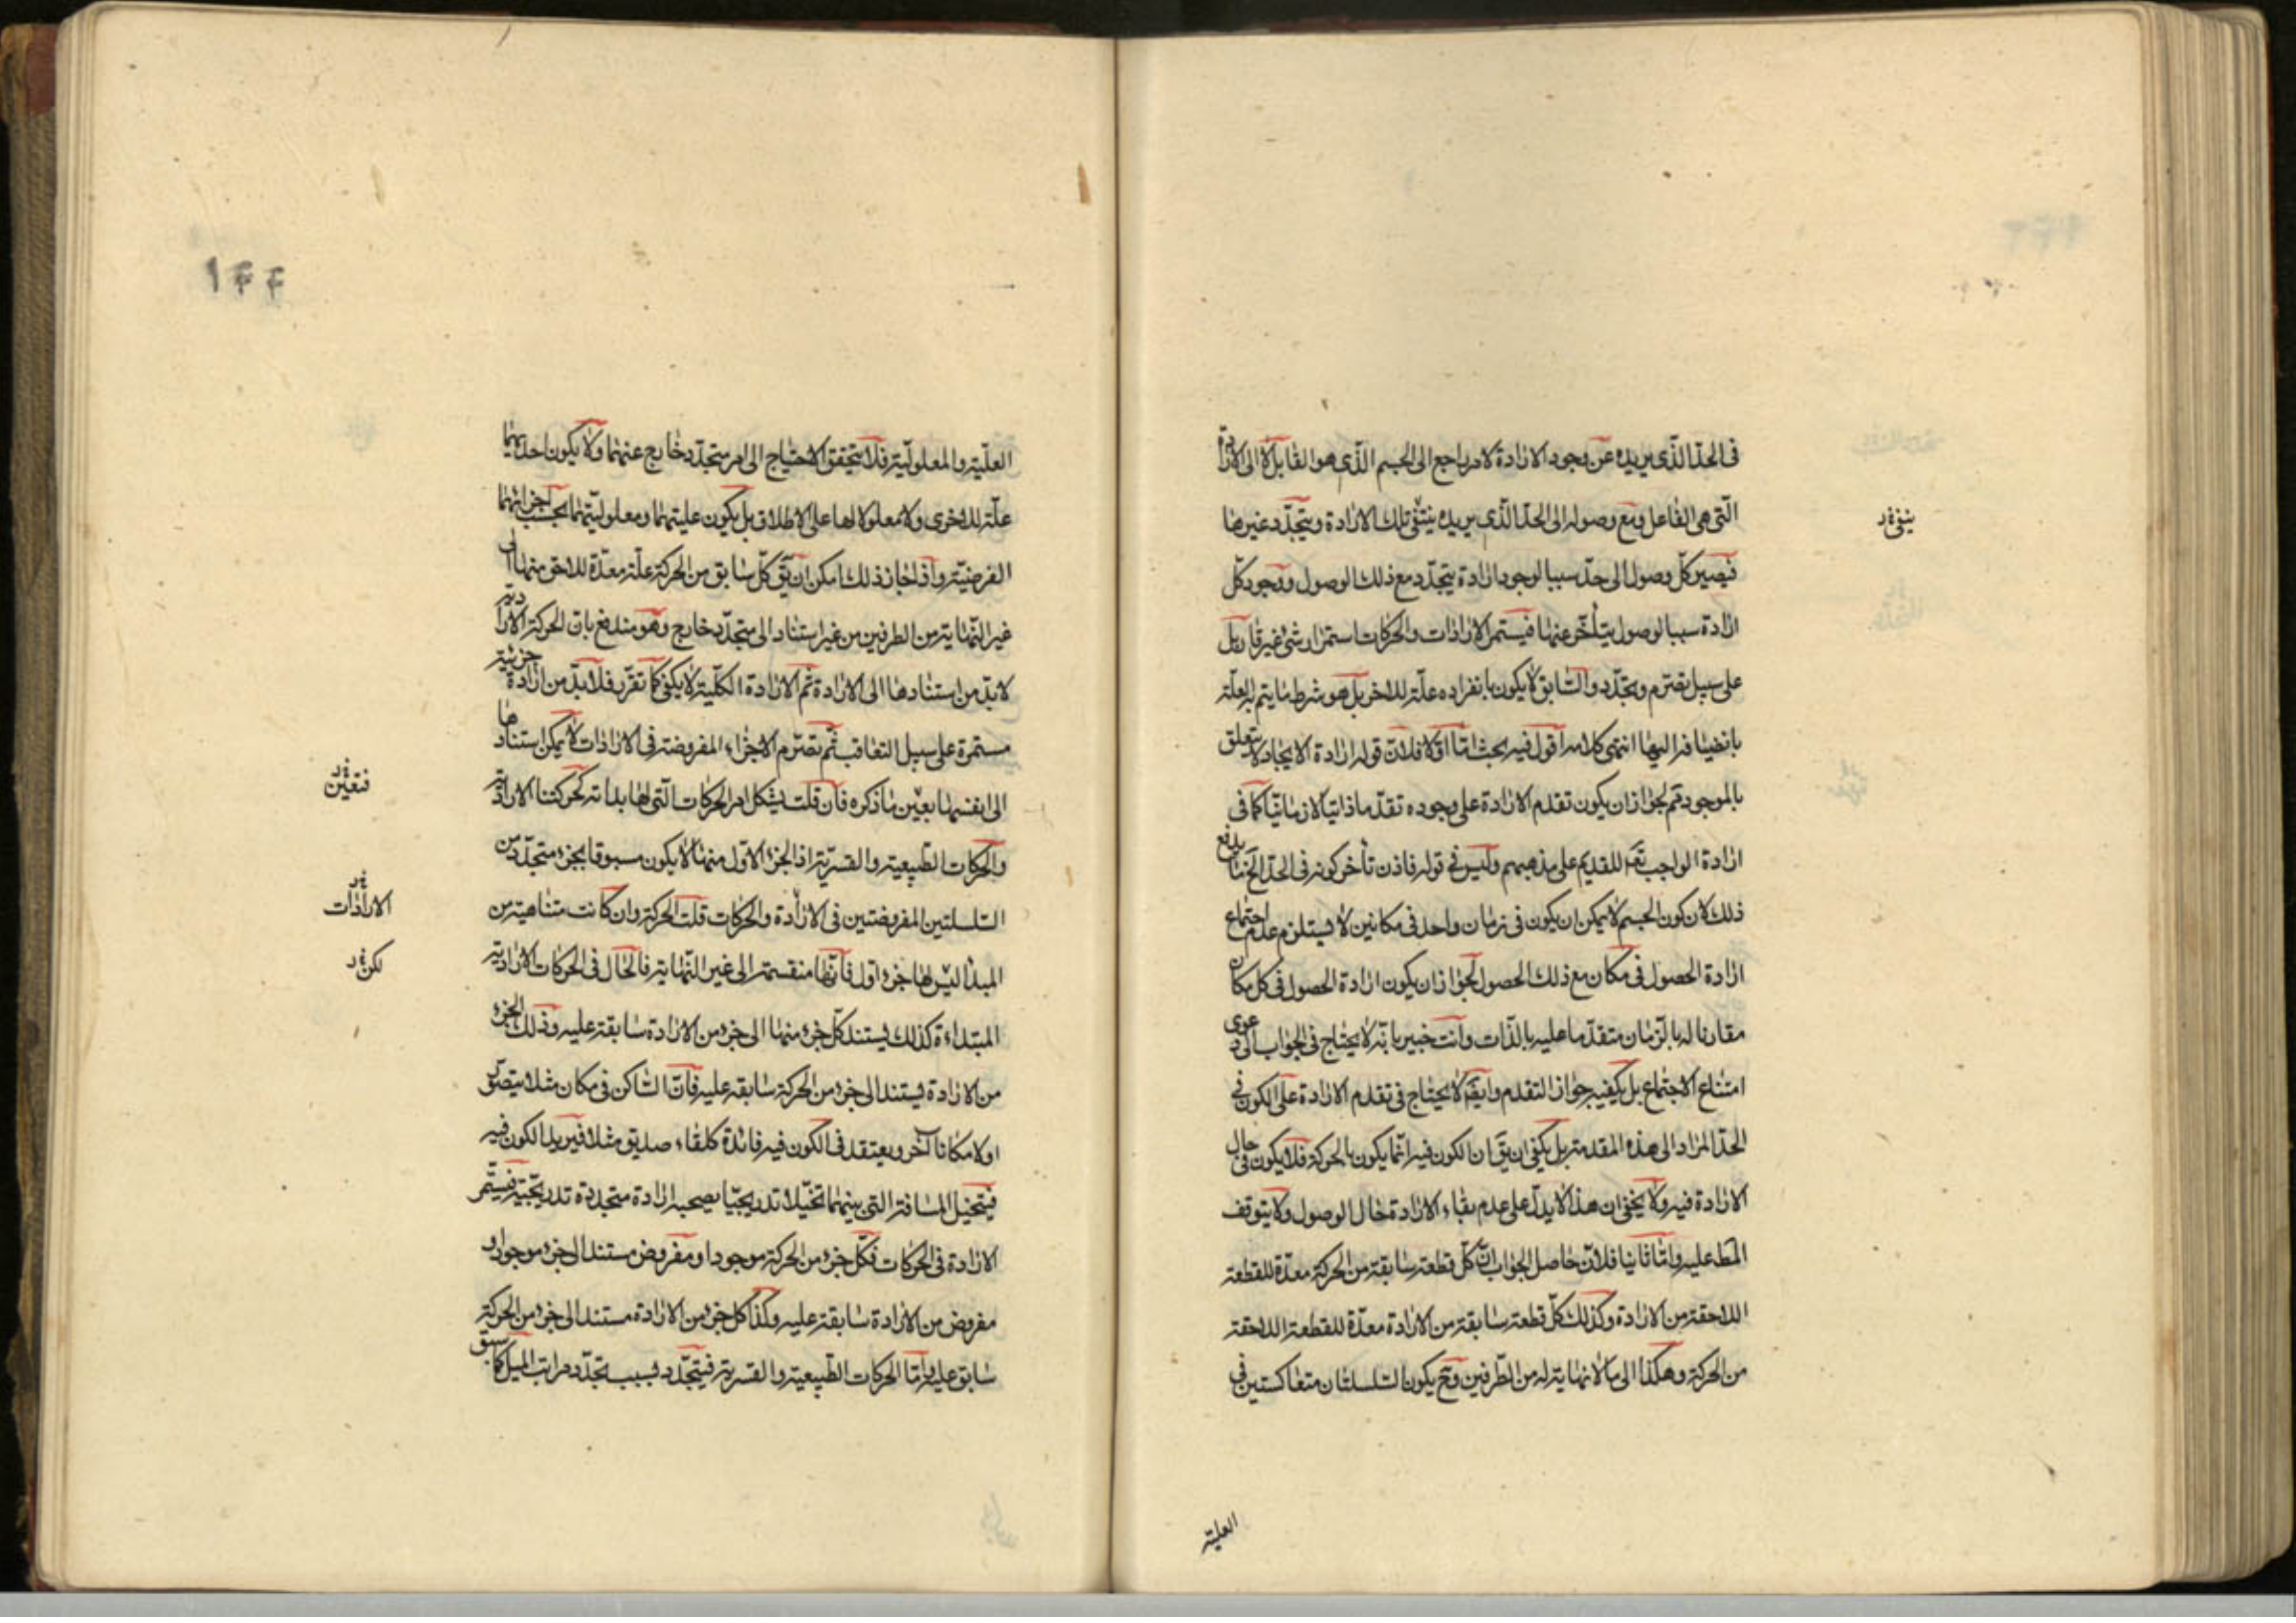 فى الحدّ الذّى يريده عن وجود الارادة لامر راجع الى الجسم الذّى هو القابل لا الى الارادة
التّى هى الفاعل ومع وصوله الى الحدّ الذّى يريده ينتفى تلك الارادة ويتجدّد غيرها
ينفى
فيصير كلّ وصول الى حدّ سببا لوجود ارادة يتجدّد مع ذلك الوصول ووجود كلّ
ارادة سببا لوصول يتأخّر عنها فيستمر الارادات والحركات استمرار شئ غير قار بل
على سبيل تصرّم وتجدّد والسّابق لا يكون بانفراده علّة للاخر بل هو شرط ما يتم العلّة
بانضيافه اليها انتهى كلامه اقول فيه بحث امّا اوّلا فلانّ قوله ارادة الايجاد لا يتعلق
بالموجود تم لجواز ان يكون تقدم الارادة على وجوده تقدّما ذاتيا لا زمانيّا كما فى
ارادة الواجب تعم للقديم على مذهبهم وليس فى قوله فاذن تأخر كونه فى الحدّ الخ ما يدفع
ذلك لان كون الجسم لا يمكن ان يكون فى زمان واحد فى مكانين لا يستلزم عدم اجتماع
ارادة الحصول فى مكان مع ذلك الحصول لجواز ان يكون ارادة الحصول فى كل مكان
مقارنا له بالزّمان متقدّما عليه بالذّات وانت خبير بانّه لا يحتاج فى الجواب الى دعوى
امتناع الاجتماع بل يكفيه جواز التقدم وايضم لا يحتاج فى تقدم الارادة على الكون فى
الحدّ المراد الى هذه المقدمة بل يكفى ان يقم ان الكون فيه انّما يكون بالحركة فلا يكون فى حال
الارادة فيه ولا يخفى ان هذا لا يدلّ على عدم بقاء الارادة حال الوصول ولا يتوقف
المط عليه وامّا ثانيا فلانّ حاصل الجواب انّ كلّ قطعة سابقة من الحركة معدّة للقطعة
اللاحقة من الارادة وكذلك كلّ قطعة سابقة من الارادة معدّة للقطعة اللاحقة
من الحركة وهكذا الى ما لا نهاية له من الطّرفين وح يكون السّلسلتان متعاكستين فى
العليّة
١۴۴
العلّية والمعلوليّة فلا يتحقق الاحتياج الى امر متجدّد خارج عنهما ولا يكون احديهما
علّة للاخرى ولا معلولا لها على الاطلاق بل يكون عليتهما ومعلوليّتهما بحسب اجزائهما
الفرضيّة واذا جاز ذلك امكن ان يقّ كلّ سابق من الحركة علّة معدّة للاحق منها الى
غير النّهاية من الطرفين من غير استناد الى متجدّد خارج وهو مندفع بانّ الحركة الارادية
لا بدّ من استنادها الى الارادة ثم الارادة الكليّة لا يكفى كما تقرّر فلا بدّ من ارادة جزئية
مستمرة على سبيل التعاقب ثم تصرّم الاجزاء المفروضة فى الارادات لا يمكن استنادها
الى انفسها بعيّن ما ذكره فان قلت يشكل امر الحركات التّى لها بداية كحركتنا الاراديّة
فتعين
والحركات الطّبيعية والقسريّة اذ الجزء الاوّل منها لا يكون مسبوقا بجزء متجدّد من
السّلسلتين المفروضتين فى الارادة والحركات قلت الحركة وان كانت متناهية من
الارادات
المبدأ ليس لها جزء اوّل فانّها منقسمة الى غير النّهاية فالحال فى الحركات الاراديّة
لكن
المبتداءة كذلك يستند كلّ جزء منها الى جزء من الارادة سابقة عليه وذلك الجزء
من الارادة يستند الى جزء من الحركة سابقة عليه فانّ السّاكن فى مكان مثلا يتصوّر
اولا مكانا آخر ويعتقد فى الكون فيه فائدة كلقاء صديق مثلا فيريد الكون فيه
فيتخيل المسافة التى بينهما تخيّلا تدريجيّا يصحبه ارادة متجددة تدريجيّة فيستمر
الارادة فى الحركات فكلّ جزء من الحركة موجود او مفروض مستند الى جزء موجود او
مفروض من الارادة سابقة عليه وكذا كل جزء من الارادة مستند الى جزء من الحركة
سابق عليه وامّا الحركات الطّبيعية والقسرية فيتجدّد بسبب تجدّد مراتب الميل كما سبق